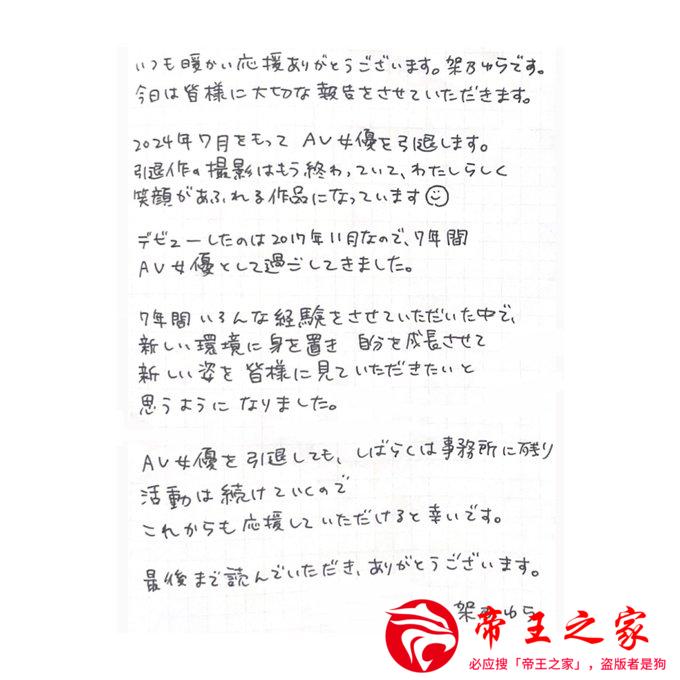 いつも暖かい応援ありがとうございます。架乃ゆらです。
今日は皆様に大切な報告をさせていただきます。
2024年7月をもって AV女優を引退します。
引退作の撮影はもう終わっていて、わたしらしく
笑顔があふれる作品になっています
デビューしたのは2017年11月なので、7年間
AV女優として過ごしてきました。
7年間いろんな経験をさせていただいた中で、
新しい環境に身を置き 自分を成長させて
新しい姿を 皆様に見ていただきたいと
思うようになりました。
AV女優を引退しても、しばらくは事務所に残り
活動は続けていくので
これからも応援していただけると幸いです。
最後まで読んでいただき、ありがとうございます。
架乃ゆら
帝王之家
必应搜「帝王之家」，盗版者是狗